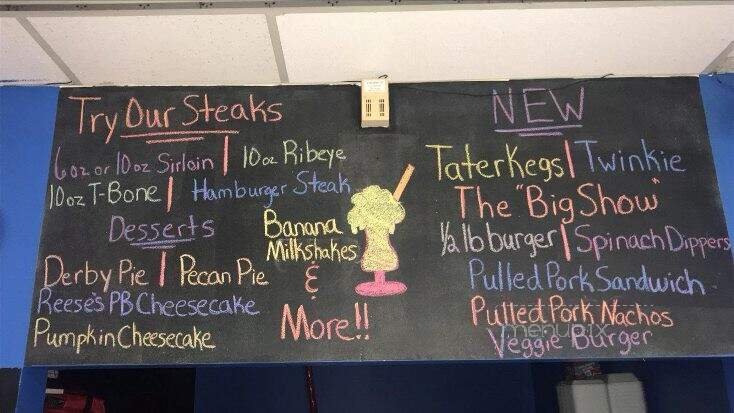 Try Our Steaks
6oz or 10oz Sirloin | 10oz Ribeye
10oz T-Bone | Hamburger Steak
Desserts
Derby Pie | Pecan Pie
Reese's PB Cheesecake
Pumpkin Cheesecake
Banana
Milkshakes
&
More!!
NEW
TaterKegs | Twinkie
The "Big Show"
1/2 lb burger | Spinach Dippers
Pulled Pork Sandwich
Pulled Pork Nachos
Veggie Burger
menupix